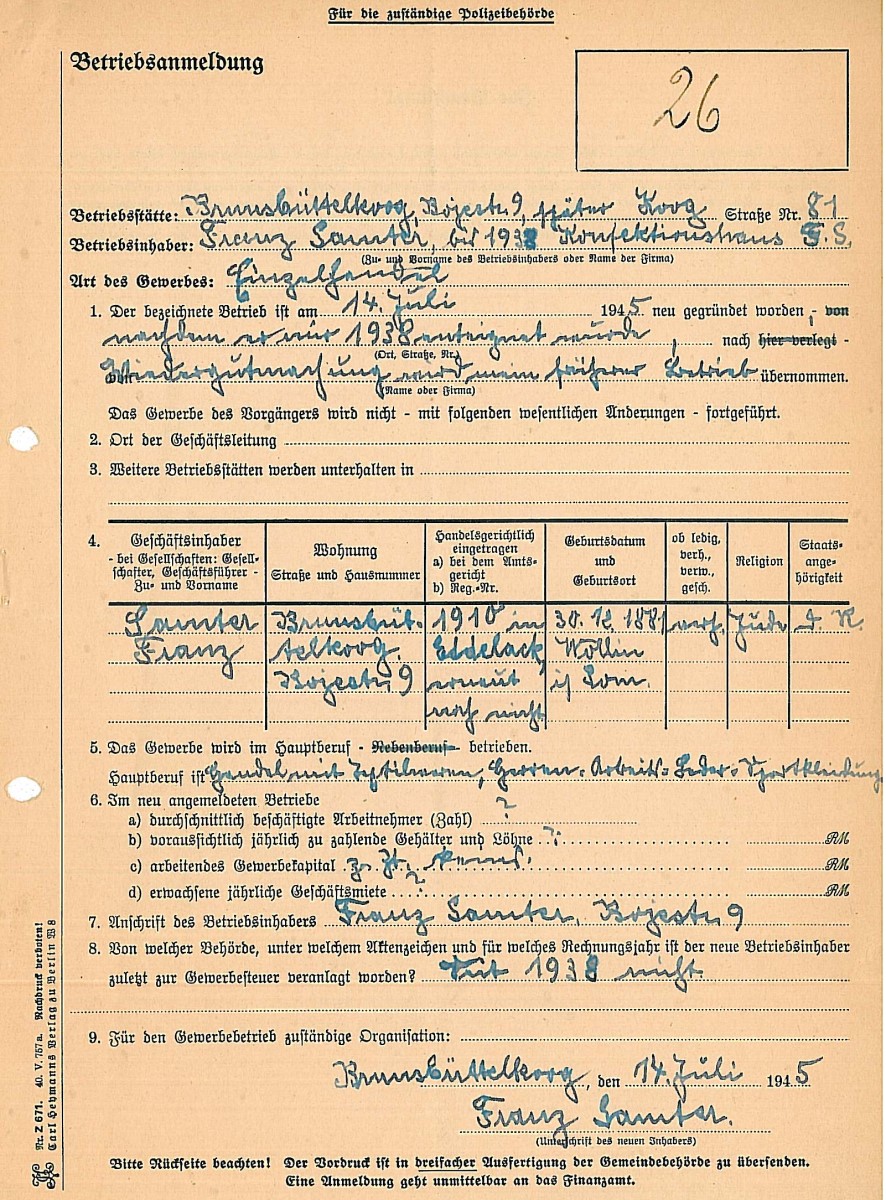 Für die zuständige Polizeibehörde
Betriebsanmeldung
26
Betriebsstätte: Brunsbüttelkoog, Bojestr. 9, später Koog Straße Nr. 81
Betriebsinhaber: Franz Samter, bis 1938 Konfektionshaus F. S.
(Zu- und Vorname des Betriebsinhabers oder Name der Firma)
Art des Gewerbes: Einzelhandel
1. Der bezeichnete Betrieb ist am 14. Juli 1945 neu gegründet worden, - von
nachdem er mir 1938 enteignet wurde, nach hier verlegt -
(Ort, Straße, Nr.)
Wiedergutmachung wird mein früherer Betrieb übernommen.
(Name oder Firma)
Das Gewerbe des Vorgängers wird nicht - mit folgenden wesentlichen Änderungen - fortgeführt.
2. Ort der Geschäftsleitung
3. Weitere Betriebsstätten werden unterhalten in
4. Geschäftsinhaber - bei Gesellschaften: Gesell- schafter, Geschäftsführer - Zu- und Vorname
Wohnung Straße und Hausnummer
Handelsgerichtlich eingetragen a) bei dem Amts- gericht b) Reg.-Nr.
Geburtsdatum und Geburtsort
ob ledig, verh., verw., gesch.
Religion
Staats- ange- hörigkeit
Samter Brunsbüt- 1910 in 30. 12. 1881 verh. Jude D. R.
Franz telkoog. Eddelack, Wollin
Bojestr. 9 erneut i/ Pom.
noch nicht
5. Das Gewerbe wird im Hauptberuf - Nebenberuf - betrieben.
Hauptberuf ist Handel mit Textilwaren, Herren- Arbeits- Leder- Sportkleidung
6. Im neu angemeldeten Betriebe
a) durchschnittlich beschäftigte Arbeitnehmer (Zahl) ?
b) voraussichtlich jährlich zu zahlende Gehälter und Löhne ? RM
c) arbeitendes Gewerbekapital z. Zt. keins. RM
d) erwachsene jährliche Geschäftsmiete ? RM
7. Anschrift des Betriebsinhabers Franz Samter, Bojestr. 9
8. Von welcher Behörde, unter welchem Aktenzeichen und für welches Rechnungsjahr ist der neue Betriebsinhaber
zuletzt zur Gewerbesteuer veranlagt worden? Seit 1938 nicht.
9. Für den Gewerbebetrieb zuständige Organisation:
Brunsbüttelkoog, den 14. Juli 1945
Franz Samter.
(Unterschrift des neuen Inhabers)
Bitte Rückseite beachten! Der Vordruck ist in dreifacher Ausfertigung der Gemeindebehörde zu übersenden.
Eine Anmeldung geht unmittelbar an das Finanzamt.
Nr. Z 671. 40. V. 767 a. Nachdruck verboten!
Carl Heymanns Verlag zu Berlin W 8